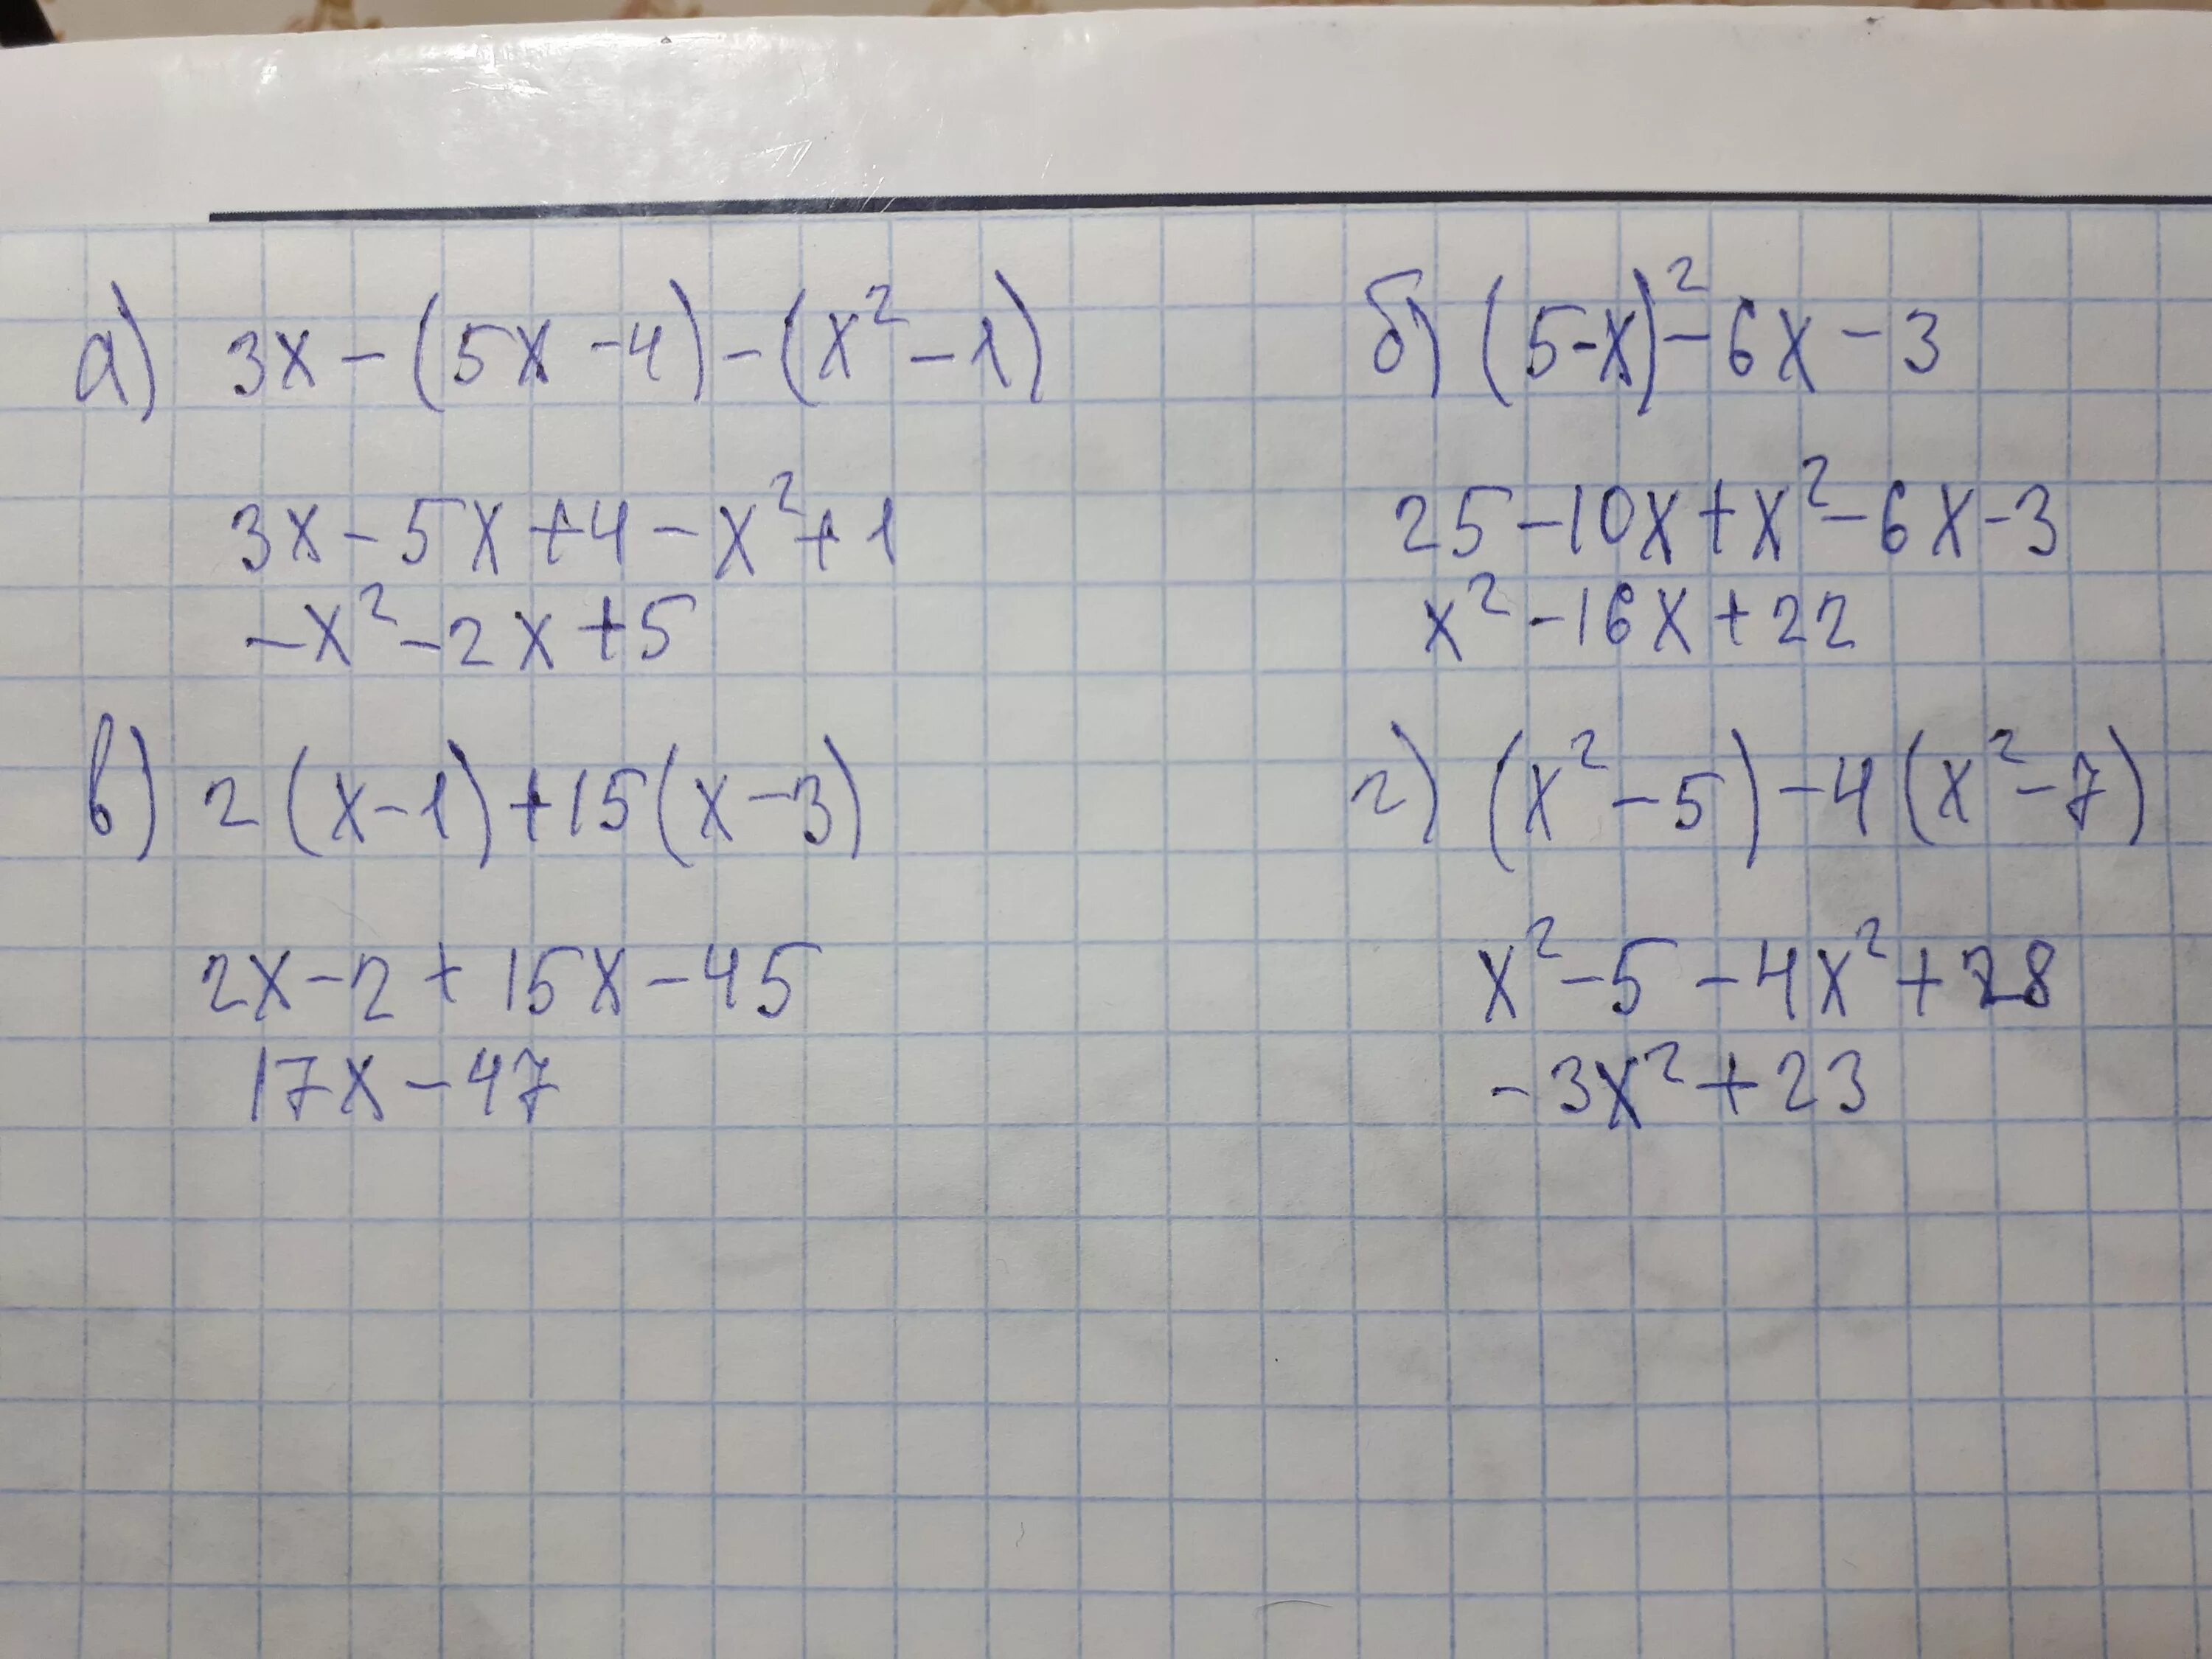 а) 3x - (5x - 4) - (x² - 1)
3x - 5x + 4 - x² + 1
-x² - 2x + 5
б) (5-x)² - 6x - 3
25 - 10x + x² - 6x - 3
x² - 16x + 22
в) 2(x-1) + 15(x-3)
2x - 2 + 15x - 45
17x - 47
г) (x² - 5) - 4(x² - 7)
x² - 5 - 4x² + 28
-3x² + 23